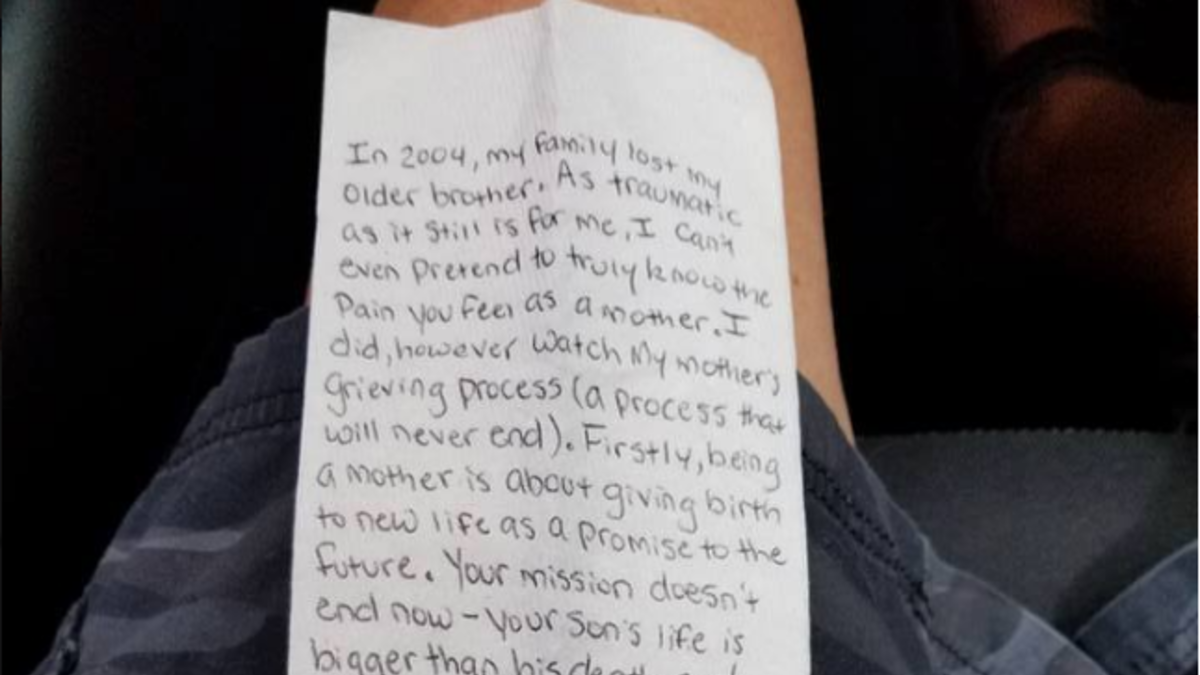 In 2004, my family lost my
older brother. As traumatic
as it still is for me, I can't
even pretend to truly know the
Pain you feel as a mother. I
did, however watch My mother's
grieving process (a process that
will never end). Firstly, being
a mother is about giving birth
to new life as a promise to the
future. Your mission doesn't
end now - your son's life is
bigger than his death